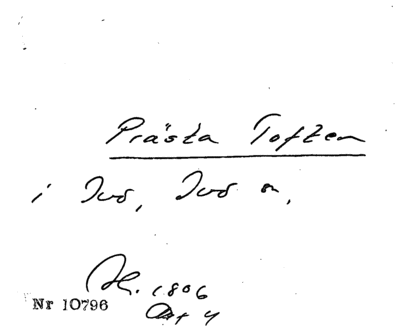 Prästa Toften
i Ivö, Ivö sn,
Ak. 1806
Akt 4
Nr 10796